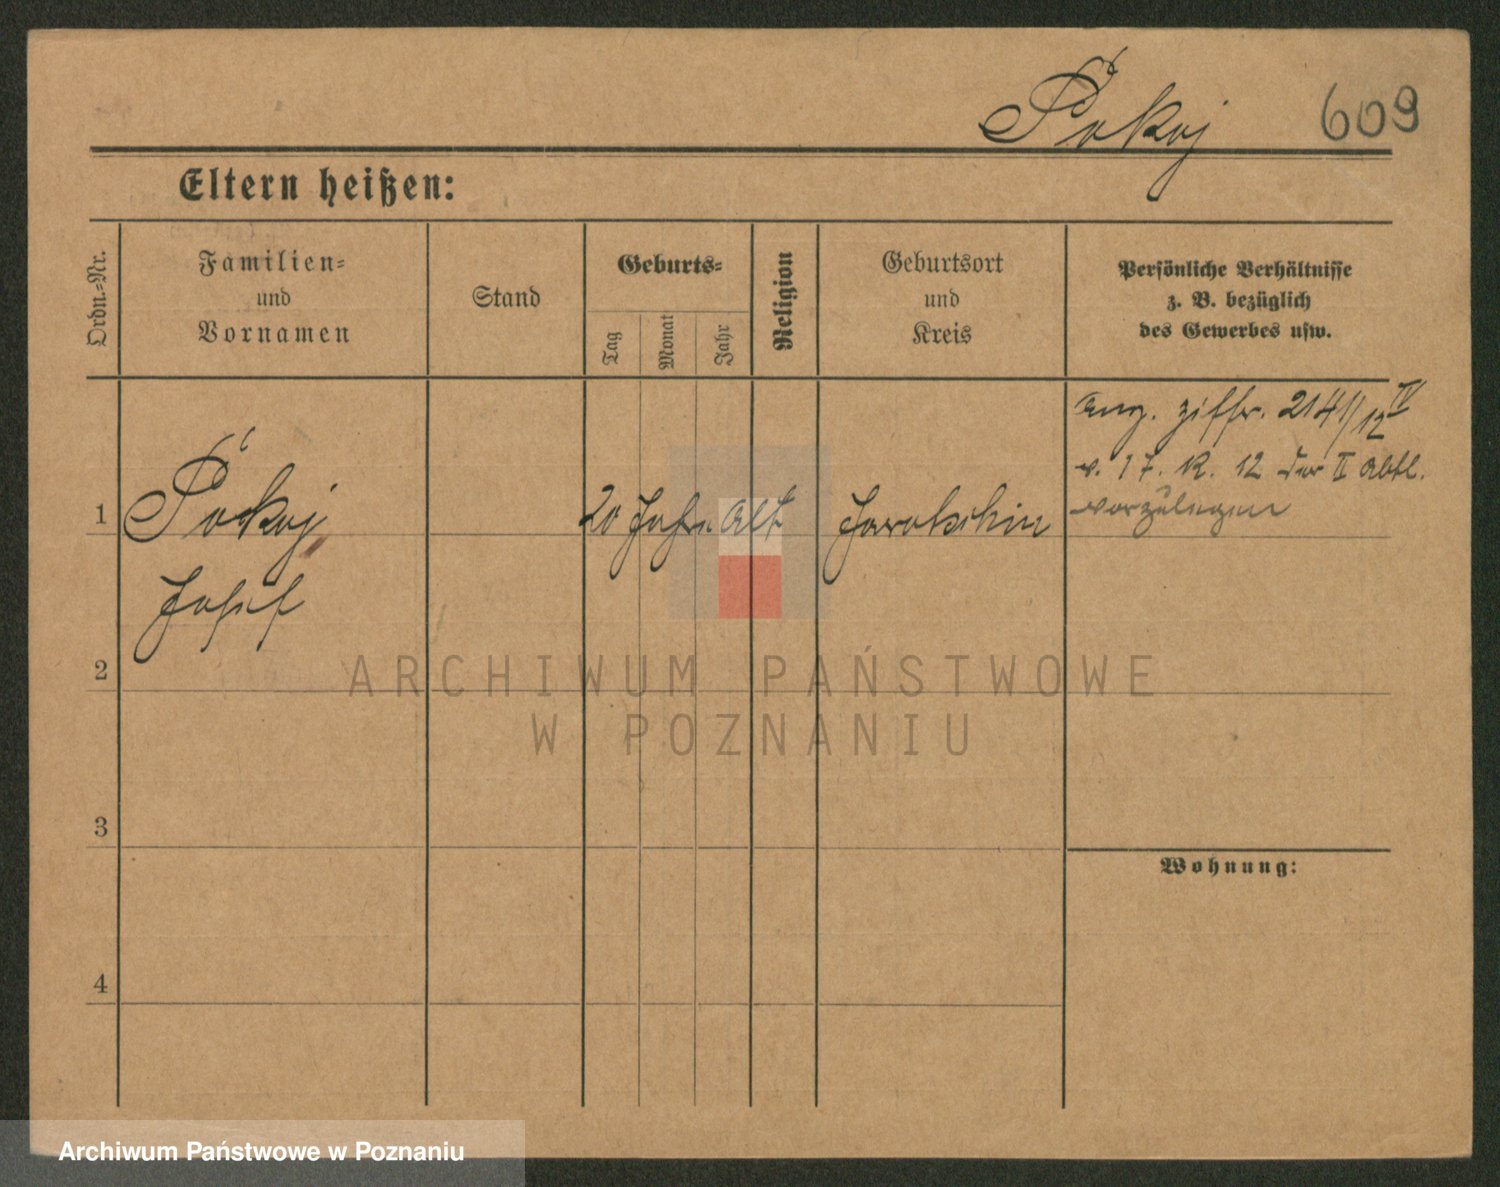 Pokoj 609
Eltern heißen:
Ordn.-Nr.
Familien-
und
Vornamen
Stand
Geburts-
Tag
Monat
Jahr
Religion
Geburtsort
und
Kreis
Persönliche Verhältnisse
z. B. bezüglich
des Gewerbes usw.
1 Pokoj 20 Jahre alt
Josef
2
3
4
Ang. Ziffr. 2141/12 IV
v. 17. 12. 12 der II Abtl.
vorzulegen
Wohnung:
ARCHIWUM PAŃSTWOWE
W POZNANIU
Archiwum Państwowe w Poznaniu